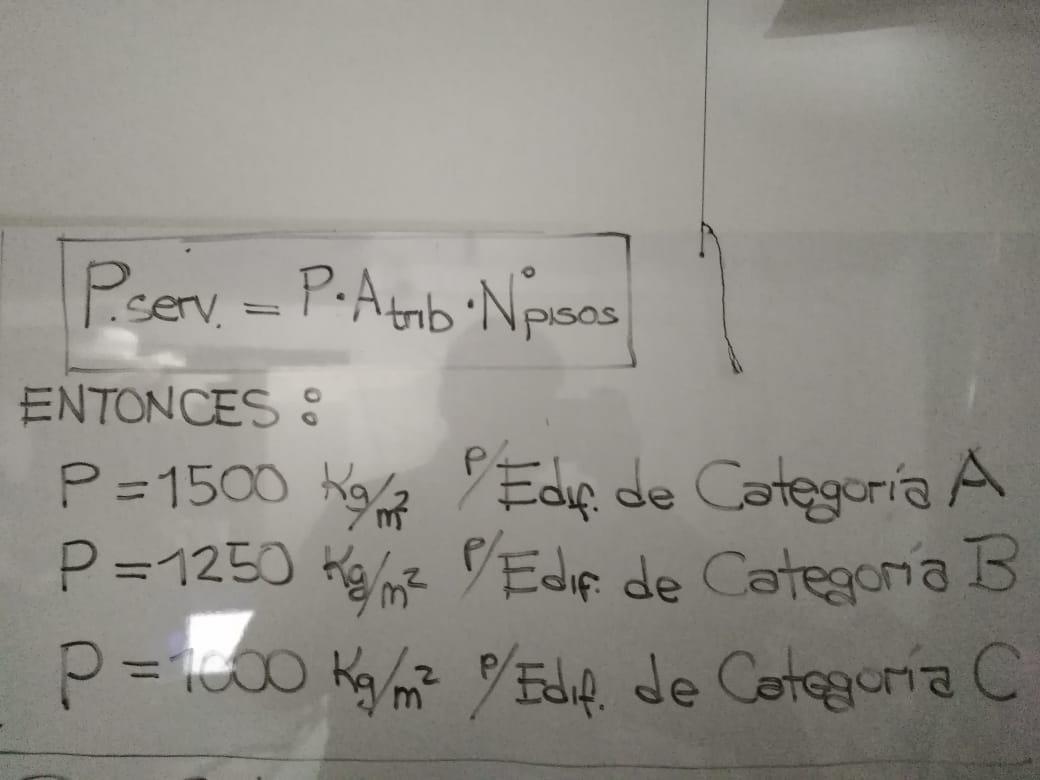 P.serv. = P.Atrib.N°pisos
ENTONCES:
P=1500 Kg/m² P/Edif. de Categoría A
P=1250 Kg/m² P/Edif. de Categoría B
P=1000 Kg/m² P/Edif. de Categoría C